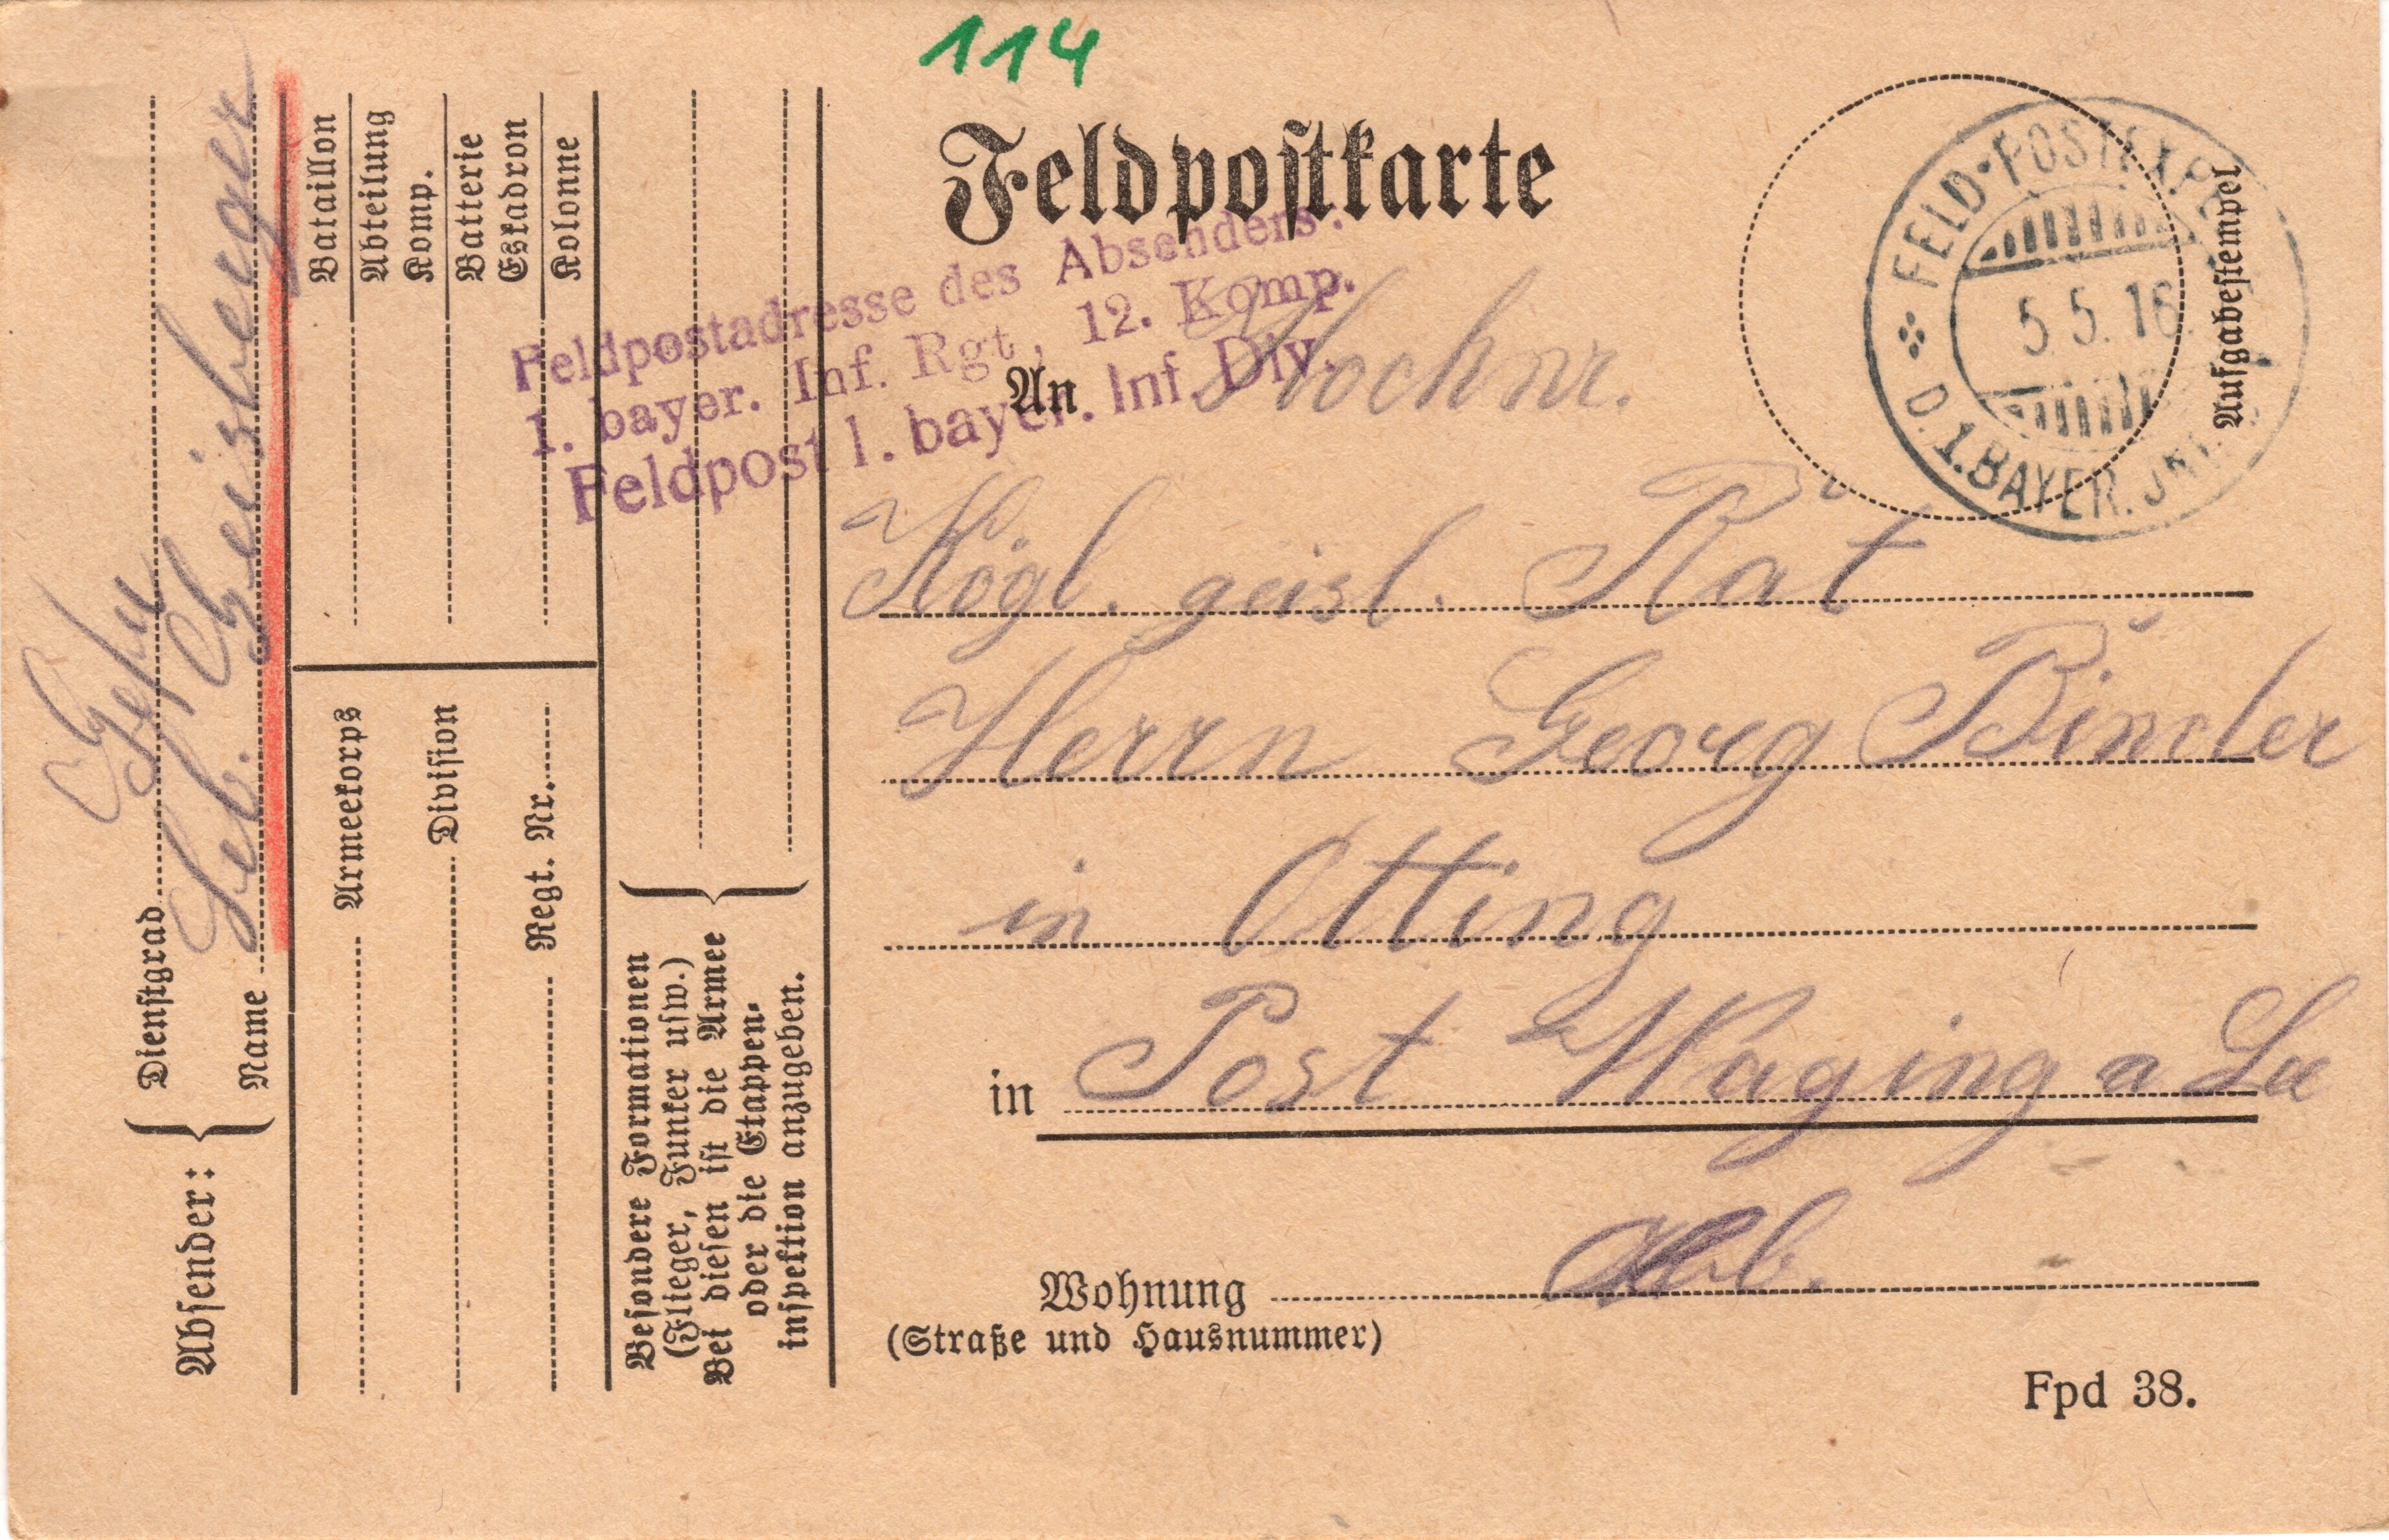 114
Feldpostkarte
FELD-POSTEXP.
5.5.16.
D. 1. BAYER. INF.
Aufgabestempel
Feldpostadresse des Absenders:
1. bayer. Inf. Rgt., 12. Komp.
Feldpost 1. bayer. Inf. Div.
An Hochw.
Kögl. geisl. Rat
Herrn Georg Binder
in Otting
in Post Waging a See
Obb.
Wohnung
(Straße und Hausnummer)
Fpd 38.
Absender:
Dienstgrad Gefr
Name Seb. Geisberger
Bataillon
Abteilung
Komp.
Batterie
Eskadron
Kolonne
Armeekorps
Division
Regt. Nr.
Besondere Formationen
(Flieger, Funker usw.)
Bei diesen ist die Armee
oder die Etappen-
inspektion anzugeben.